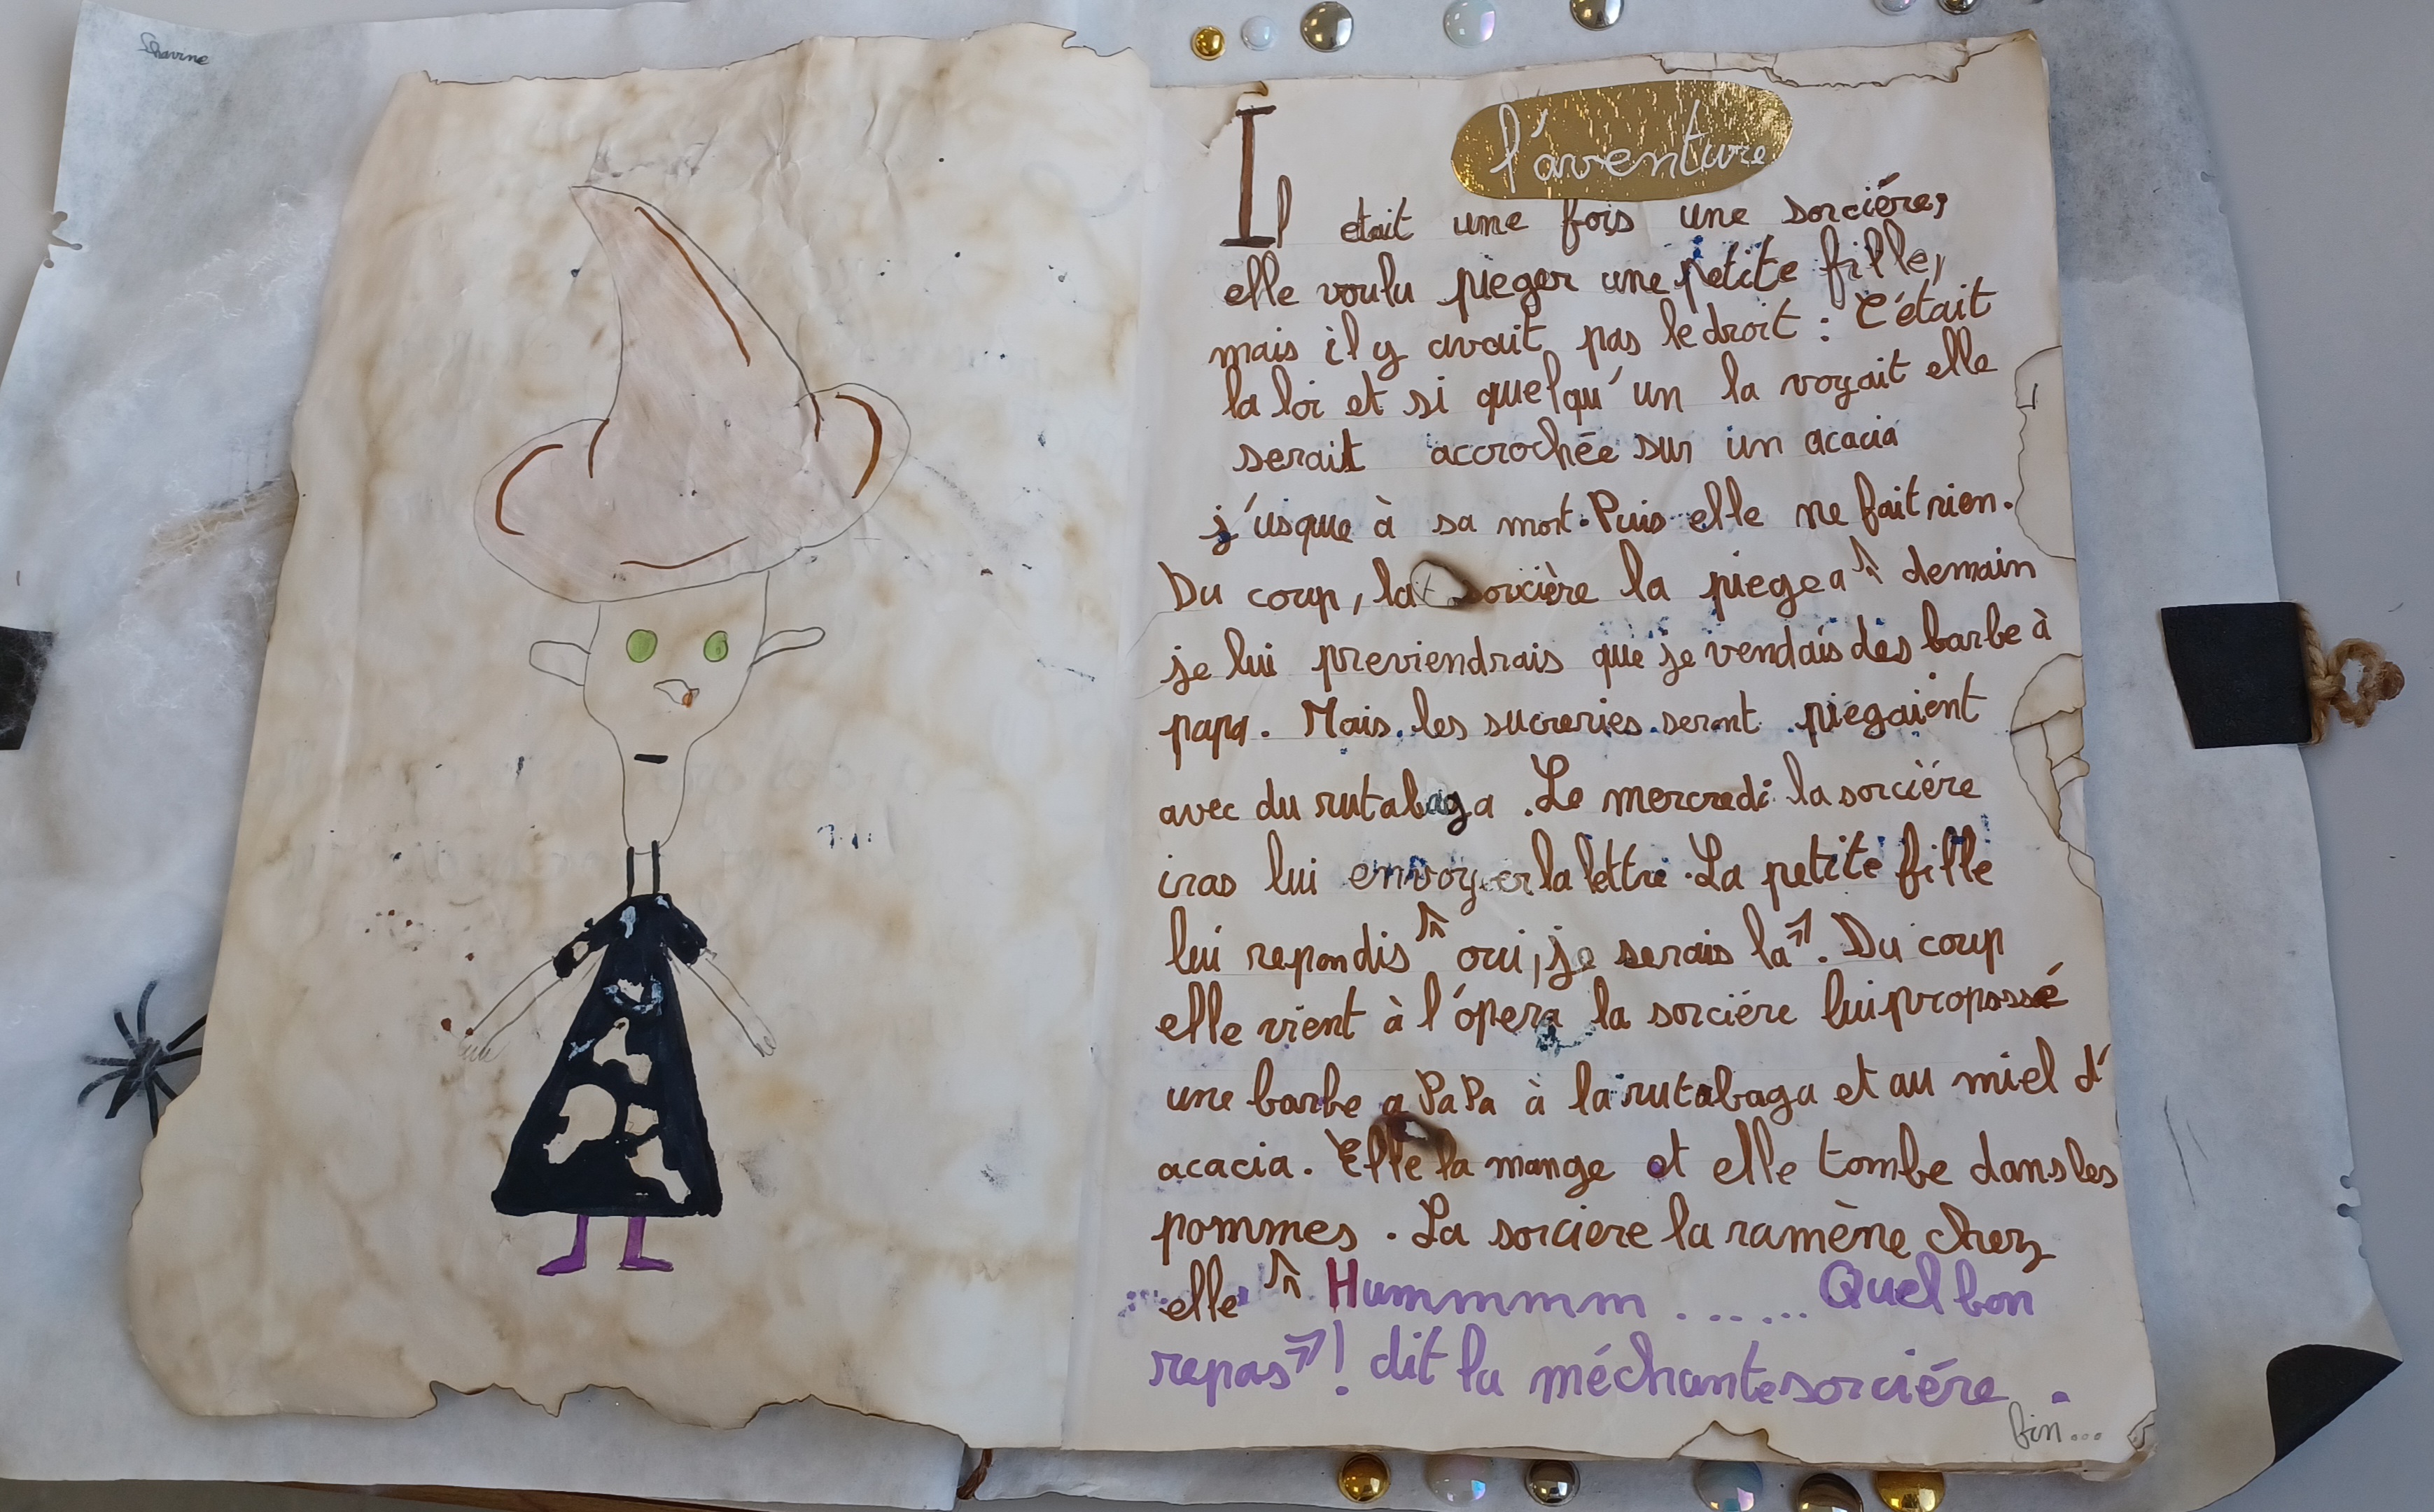 l'aventure
Il etait une fois une sorciére,
elle voulu pieger une petite fille,
mais il y avait pas le droit : C'était
la loi et si quelqu'un la voyait elle
serait accrochée sur un acacia
j'usque à sa mort. Puis elle ne fait rien.
Du coup, la sorcière la piegea « demain
je lui previendrais que je vendais des barbe à
papa. Mais les sucreries seront piegaient
avec du rutabaga. Le mercredi la sorciére
iras lui envoyer la lettre. La petite fille
lui repondis « oui, je serais la ». Du coup
elle vient à l'ópera la sorciére lui propossé
une barbe a PaPa à la rutabaga et au miel d'
acacia. Elle la mange et elle tombe dans les
pommes. La sorciere la ramène chez
elle « Hummmmm ...... Quel bon
repas »! dit la méchante sorciére.
fin...